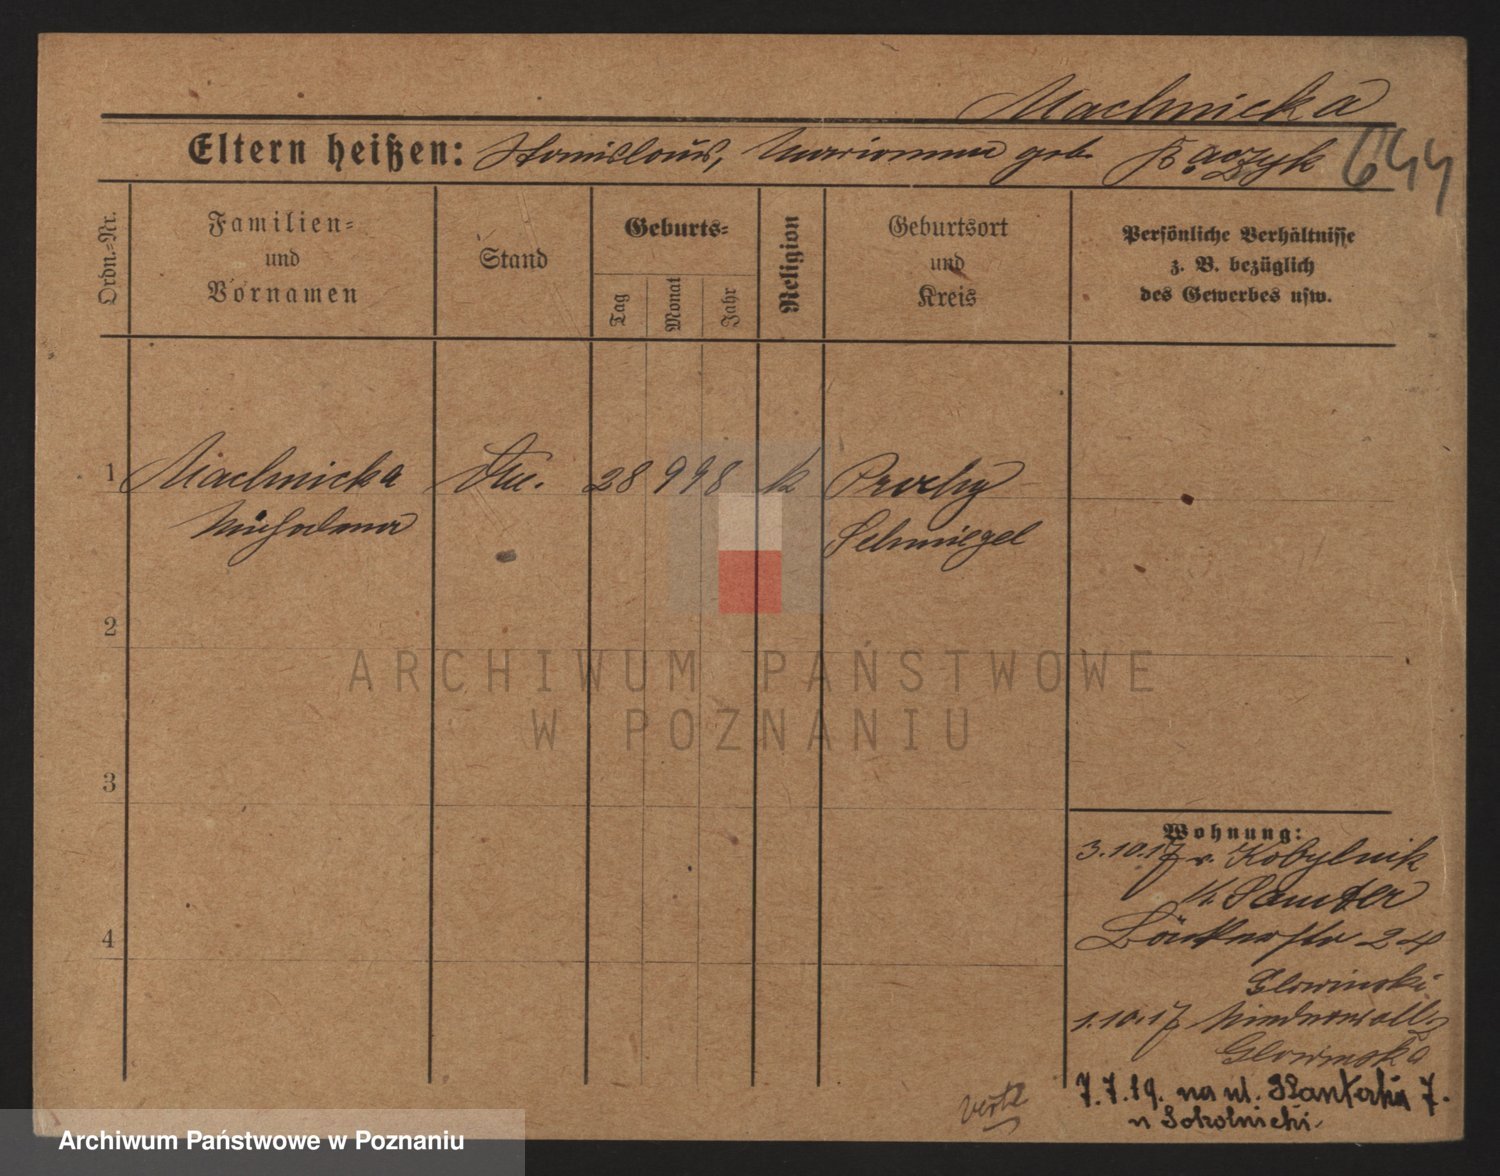 Machnicka
Eltern heißen: Stanislaus, Marianna geb. Bączyk 644
Ordn.-Nr.
Familien-
und
Vornamen
Stand
Geburts-
Tag
Monat
Jahr
Religion
Geburtsort
und
Kreis
Persönliche Verhältnisse
z. B. bezüglich
des Gewerbes usw.
1 Machnicka 28 9 98 k Prochy
Schmiegel
2
3
4
Wohnung:
3.10.17 v. Kobylnik
K. Samter
Bäckerstr 24
Glowinski
1.10.17
Glowinska
7.7.19. na ul. 7.
u Sokolnicki.
ARCHIWUM PAŃSTWOWE
W POZNANIU
Archiwum Państwowe w Poznaniu